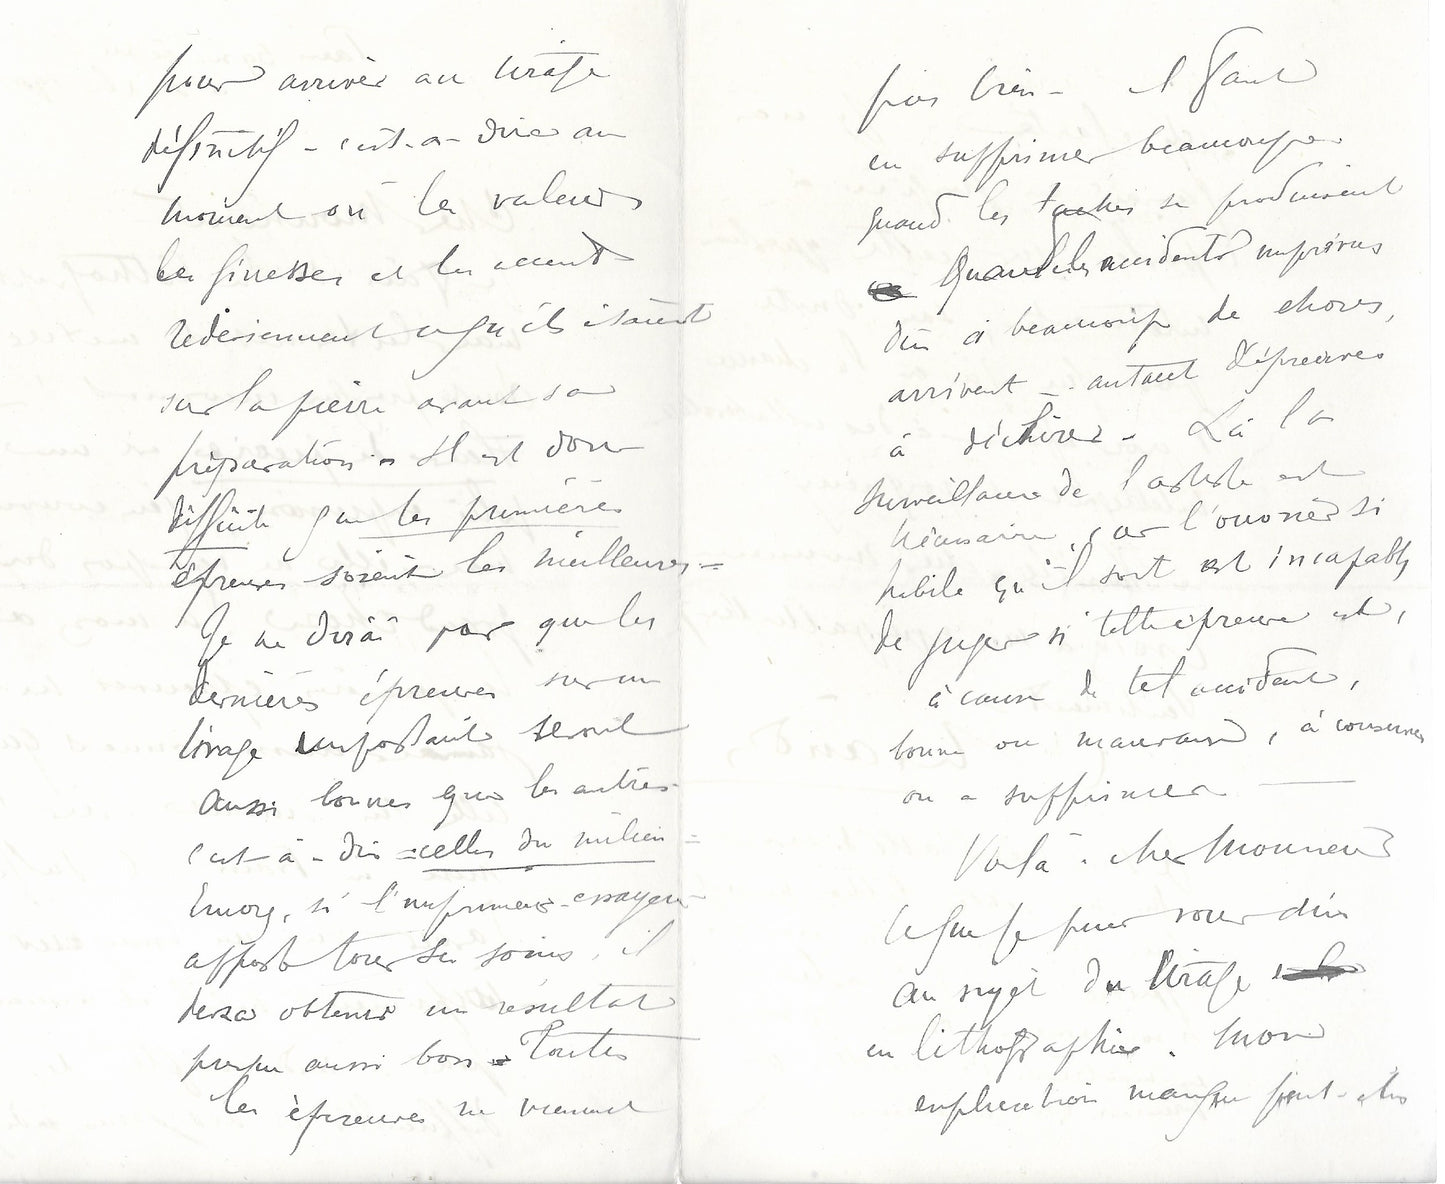 pour arriver au tirage
définitif - c'est-a-dire au
moment où les valeurs
les finesses et les accents
redeviennent ce qu'ils étaient
sur la pierre avant sa
préparation = Il est donc
difficile que les premières
épreuves soient les meilleures =
Je ne dirai pas que les
dernières épreuves sur un
tirage important seront
aussi bonnes que les autres
c'est-à-dire = celles du milieu =
Encore, si l'imprimeur-essayeur
apporte tous ses soins, il
devra obtenir un résultat
presque aussi bon = Toutes
les épreuves ne viennent
pas bien - il faut
en supprimer beaucoup
quand les taches se produisent
Quand les accidents imprévus
dûs à beaucoup de choses,
arrivent - autant d'épreuves
à déchirer - Là la
surveillance de l'artiste est
nécessaire, car l'ouvrier si
habile qu'il soit est incapable
de juger si telle épreuve est,
à cause de tel accident,
bonne ou mauvaise, à conserver
ou a supprimer -
Voilà - cher Monsieur
ce que je puis vous dire
au sujet du tirage
en lithographie. Mon
explication manque peut-être